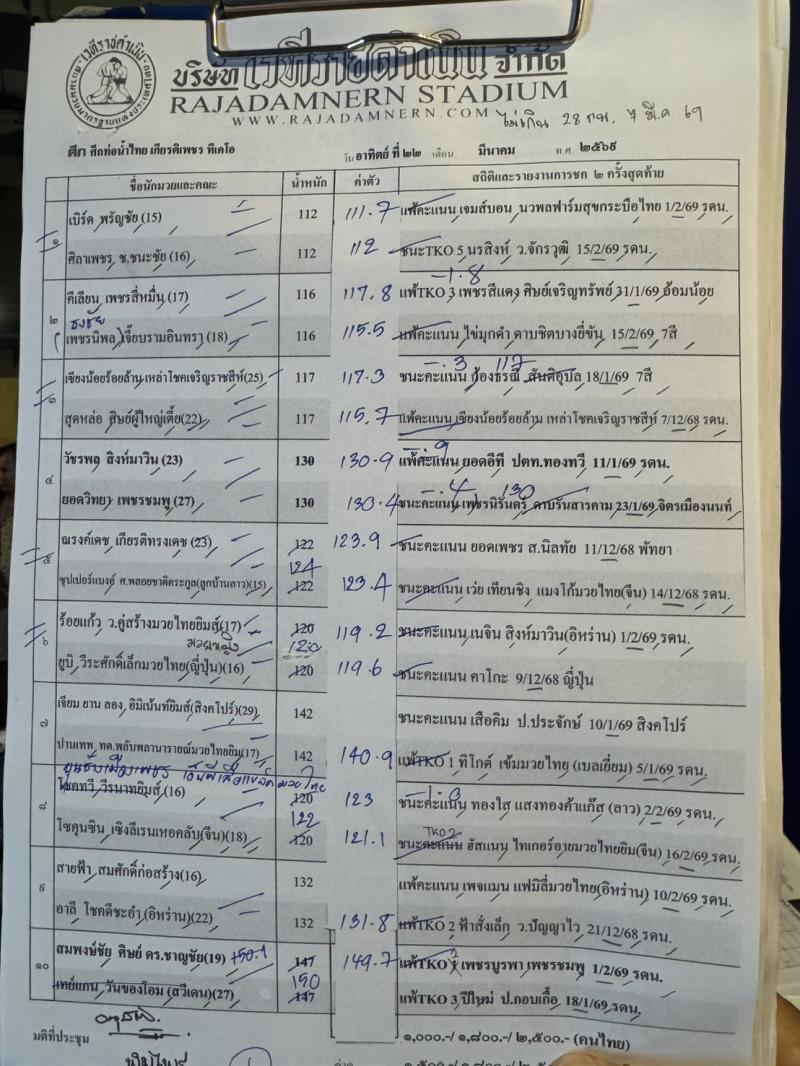 บริษัท เวทีราชดำเนิน จำกัด
RAJADAMNERN STADIUM
WWW.RAJADAMNERN.COM
ไม่เกิน 28 กพ. 7 มี.ค 69
ศึก ศึกท่อน้ำไทย เกียรติเพชร ทีเคโอ
วัน อาทิตย์ ที่ ๒๒ เดือน มีนาคม พ.ศ. ๒๕๖๙
ชื่อนักมวยและคณะ น้ำหนัก ค่าตัว สถิติและรายงานการชก ๒ ครั้งสุดท้าย
๑
เบิร์ด พรัญชัย (15) 112 111.7 แพ้คะแนน เจมส์บอน นวพลฟาร์มสุขกระบือไทย 1/2/69 รดน.
ศิลาเพชร ช.ชนะชัย (16) 112 112 ชนะTKO 5 นรสิงห์ ว.จักรวุฒิ 15/2/69 รดน.
-1.8
๒
คีเลียน เพชรสี่หมื่น (17) 116 117.8 แพ้TKO 3 เพชรสีแดง ศิษย์เจริญทรัพย์ 31/1/69 อ้อมน้อย
ธงชัย
(เพชรนิพล) เจี๊ยบรามอินทรา (18) 116 115.5 แพ้คะแนน ไข่มุกดำ ดาบชิตบางยี่ขัน 15/2/69 7สี
-.3 117
๓
เซียงน้อยร้อยล้าน เหล่าโชคเจริญราชสีห์(25) 117 117.3 ชนะคะแนน ก้องธรณี สันติอุบล 18/1/69 7สี
สุดหล่อ ศิษย์ผู้ใหญ่เตี้ย(22) 117 115.7 แพ้คะแนน เซียงน้อยร้อยล้าน เหล่าโชคเจริญราชสีห์ 7/12/68 รดน.
-.9
๔
วัชรพล สิงห์มาวิน (23) 130 130.9 แพ้คะแนน ยอดอีที ปตท.ทองทวี 11/1/69 รดน.
-.4 130
ยอดวิทยา เพชรชมพู (27) 130 130.4 ชนะคะแนน เพชรนิรันดร์ ดาบรันสารคาม 23/1/69 จิตรเมืองนนท์
๕
ณรงค์เดช เกียรติทรงเดช (23) 122 123.9 ชนะคะแนน ยอดเพชร ส.นิลทัย 11/12/68 พัทยา
124
ซุปเปอร์แบงค์ ศ.พลอยชาติตระกูล(ลูกบ้านลาว)(15) 122 123.4 ชนะคะแนน เว่ย เทียนชิง แมงโก้มวยไทย(จีน) 14/12/68 รดน.
๖
ร้อยแก้ว ว.คู่สร้างมวยไทยยิมส์(17) 120 119.2 ชนะคะแนน เนจิน สิงห์มาวิน(อิหร่าน) 1/2/69 รดน.
มวยหญิง 120
ยูบิ วีระศักดิ์เล็กมวยไทย(ญี่ปุ่น)(16) 120 119.6 ชนะคะแนน คาโกะ 9/12/68 ญี่ปุ่น
๗
เจียม ยาน ลอง อิมิเน้นท์ยิมส์(สิงคโปร์)(29) 142 ชนะคะแนน เสือคิม ป.ประจักษ์ 10/1/69 สิงคโปร์
ปานเทพ ทต.พลับพลานารายณ์มวยไทยยิม(17) 142 140.9 แพ้TKO 1 ทิโกต์ เข้มมวยไทย (เบลเยี่ยม) 5/1/69 รดน.
๘
-1.3
โชคทวี วีรนาทยิมส์ (16) 120 123 ชนะคะแนน ทองใส แสงทองค้าแก๊ส (ลาว) 2/2/69 รดน.
122 TKO 2
โซคุนซิน เซิงลีเรนเหอคลับ(จีน)(18) 120 121.1 ชนะคะแนน ฮัสแนน ไทเกอร์อายมวยไทยยิม(จีน) 16/2/69 รดน.
๙
สายฟ้า สมศักดิ์ก่อสร้าง(16) 132 แพ้คะแนน เพจแมน แฟมิลี่มวยไทย(อิหร่าน) 10/2/69 รดน.
อาลี โชคดีชะอำ (อิหร่าน)(22) 132 131.8 แพ้TKO 2 ฟ้าสั่งเล็ก ว.ปัญญาไว 21/12/68 รดน.
๑๐
สมพงษ์ชัย ศิษย์ ดร.ชาญชัย(19) 150.1 147 149.7 แพ้TKO 1 เพชรบูรพา เพชรชมพู 1/2/69 รดน.
150
เทย์แกน วันของโอม (สวีเดน)(27) 147 แพ้TKO 3 ปีใหม่ ป.กอบเกื้อ 18/1/69 รดน.
มติที่ประชุม ๑,๐๐๐.-/ ๑,๘๐๐.-/ ๒,๕๐๐.- (คนไทย)